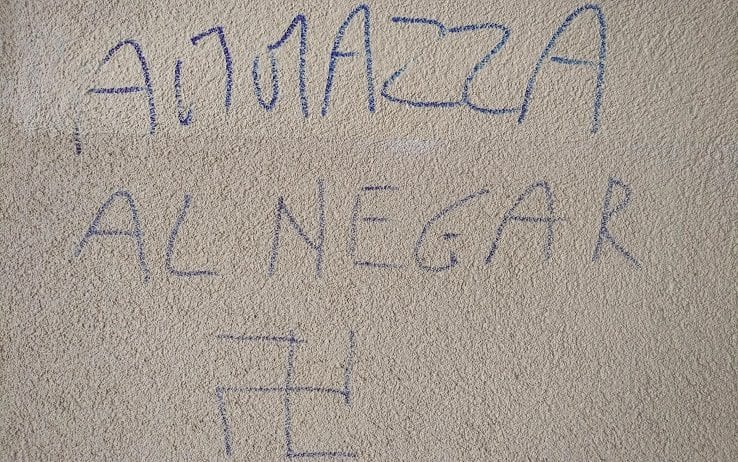 AMMAZZA
AL NEGAR